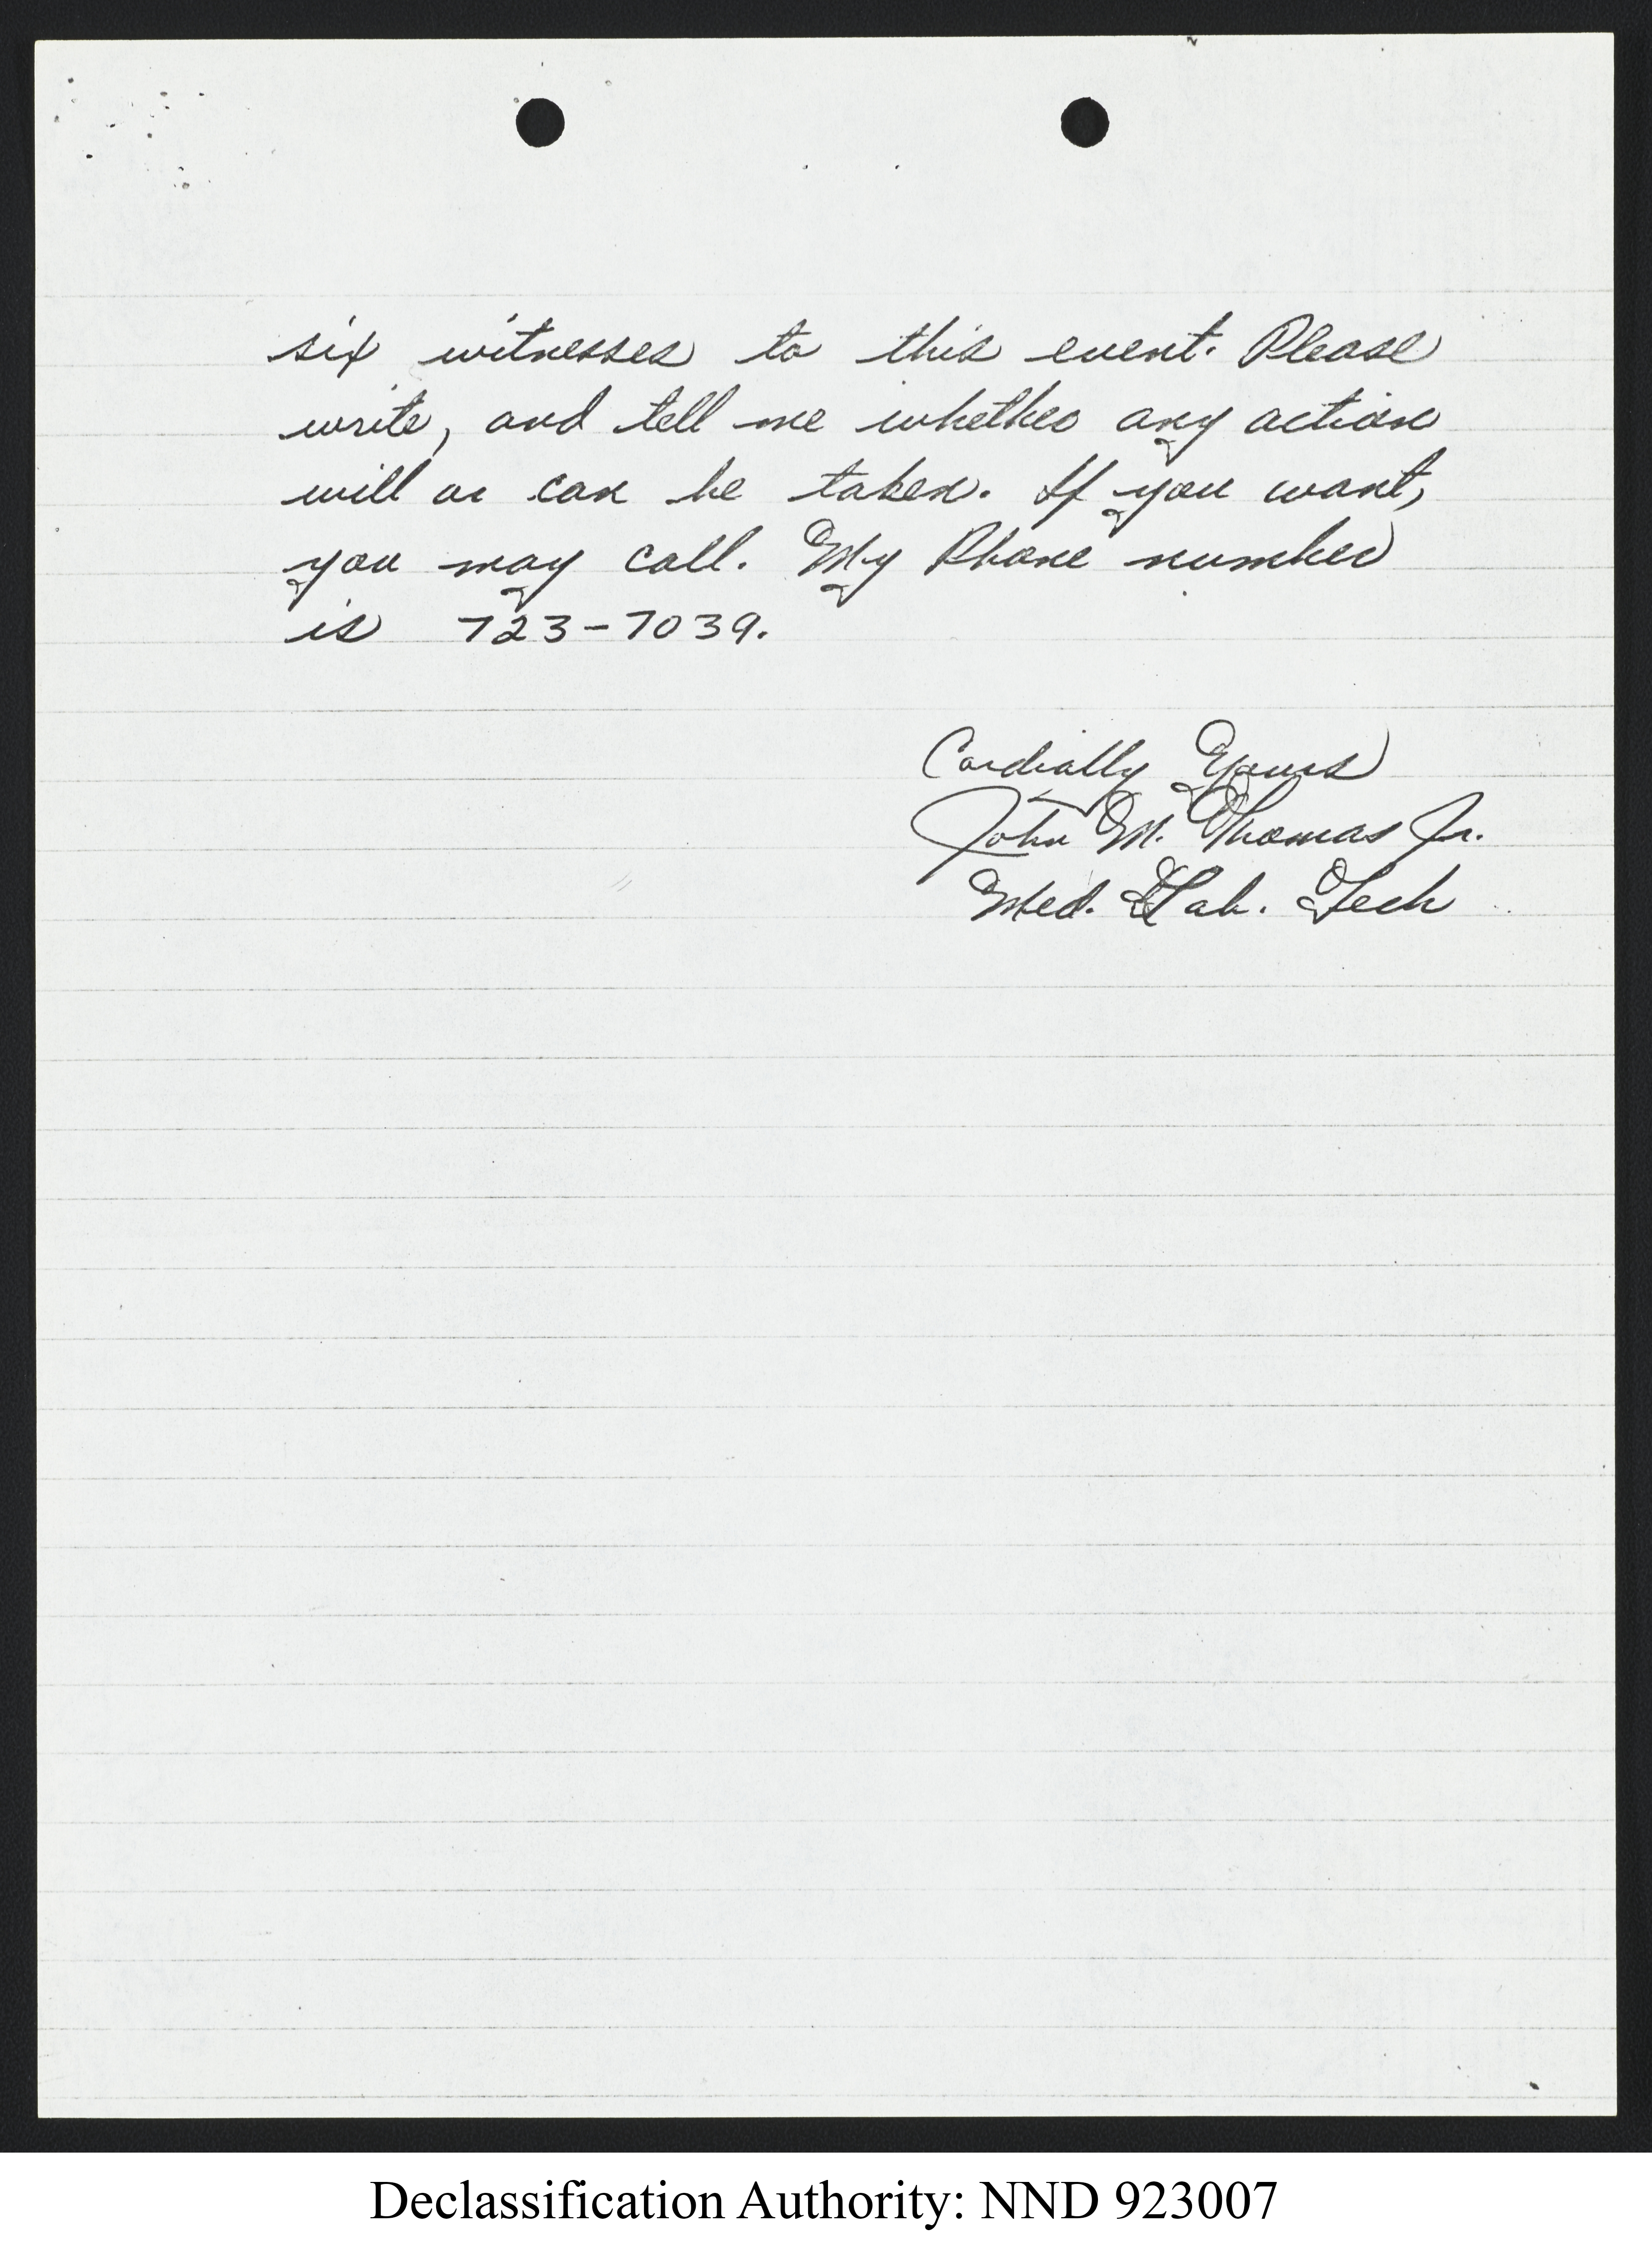 six witnesses to this event. Please
write, and tell me whether any action
will or can be taken. If you want,
you may call. My Phone number
is 723-7039.
Cordially Yours
John M. Thomas Jr.
Med. Lab. Tech
Declassification Authority: NND 923007